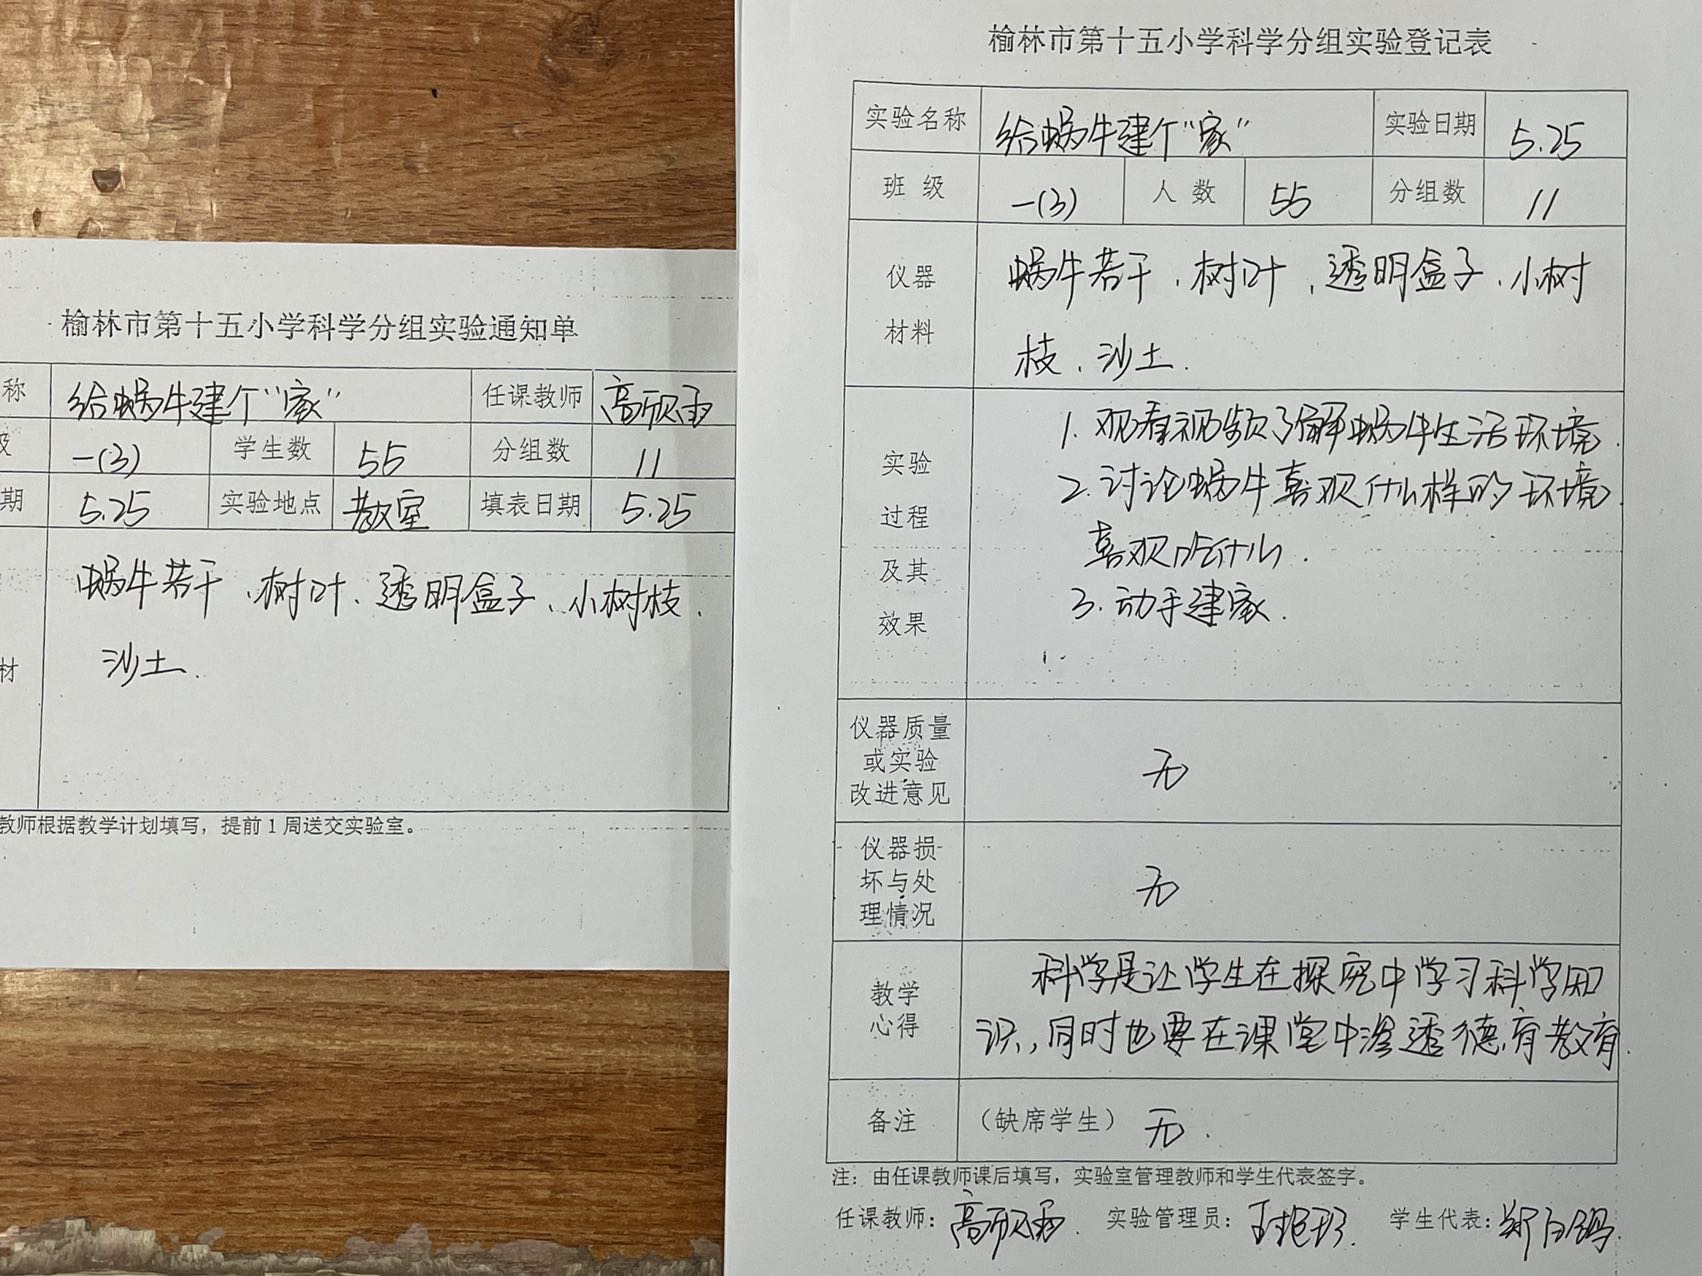 榆林市第十五小学科学分组实验通知单
称 给蜗牛建个“家” 任课教师 高欣雨
级 一(3) 学生数 55 分组数 11
期 5.25 实验地点 教室 填表日期 5.25
材 蜗牛若干、树叶、透明盒子、小树枝、
沙土.
教师根据教学计划填写，提前1周送交实验室。
榆林市第十五小学科学分组实验登记表
实验名称 给蜗牛建个“家” 实验日期 5.25
班级 一(3) 人数 55 分组数 11
仪器 蜗牛若干、树叶、透明盒子、小树
材料 枝、沙土.
实验
过程
及其
效果
1. 观看视频了解蜗牛生活环境.
2. 讨论蜗牛喜欢什么样的环境
喜欢吃什么.
3. 动手建家.
仪器质量
或实验
改进意见
无
仪器损
坏与处
理情况
无
教学
心得
科学是让学生在探究中学习科学知
识,同时也要在课堂中渗透德育教育.
备注 （缺席学生） 无.
注：由任课教师课后填写，实验室管理教师和学生代表签字。
任课教师：高欣雨. 实验管理员： 学生代表：